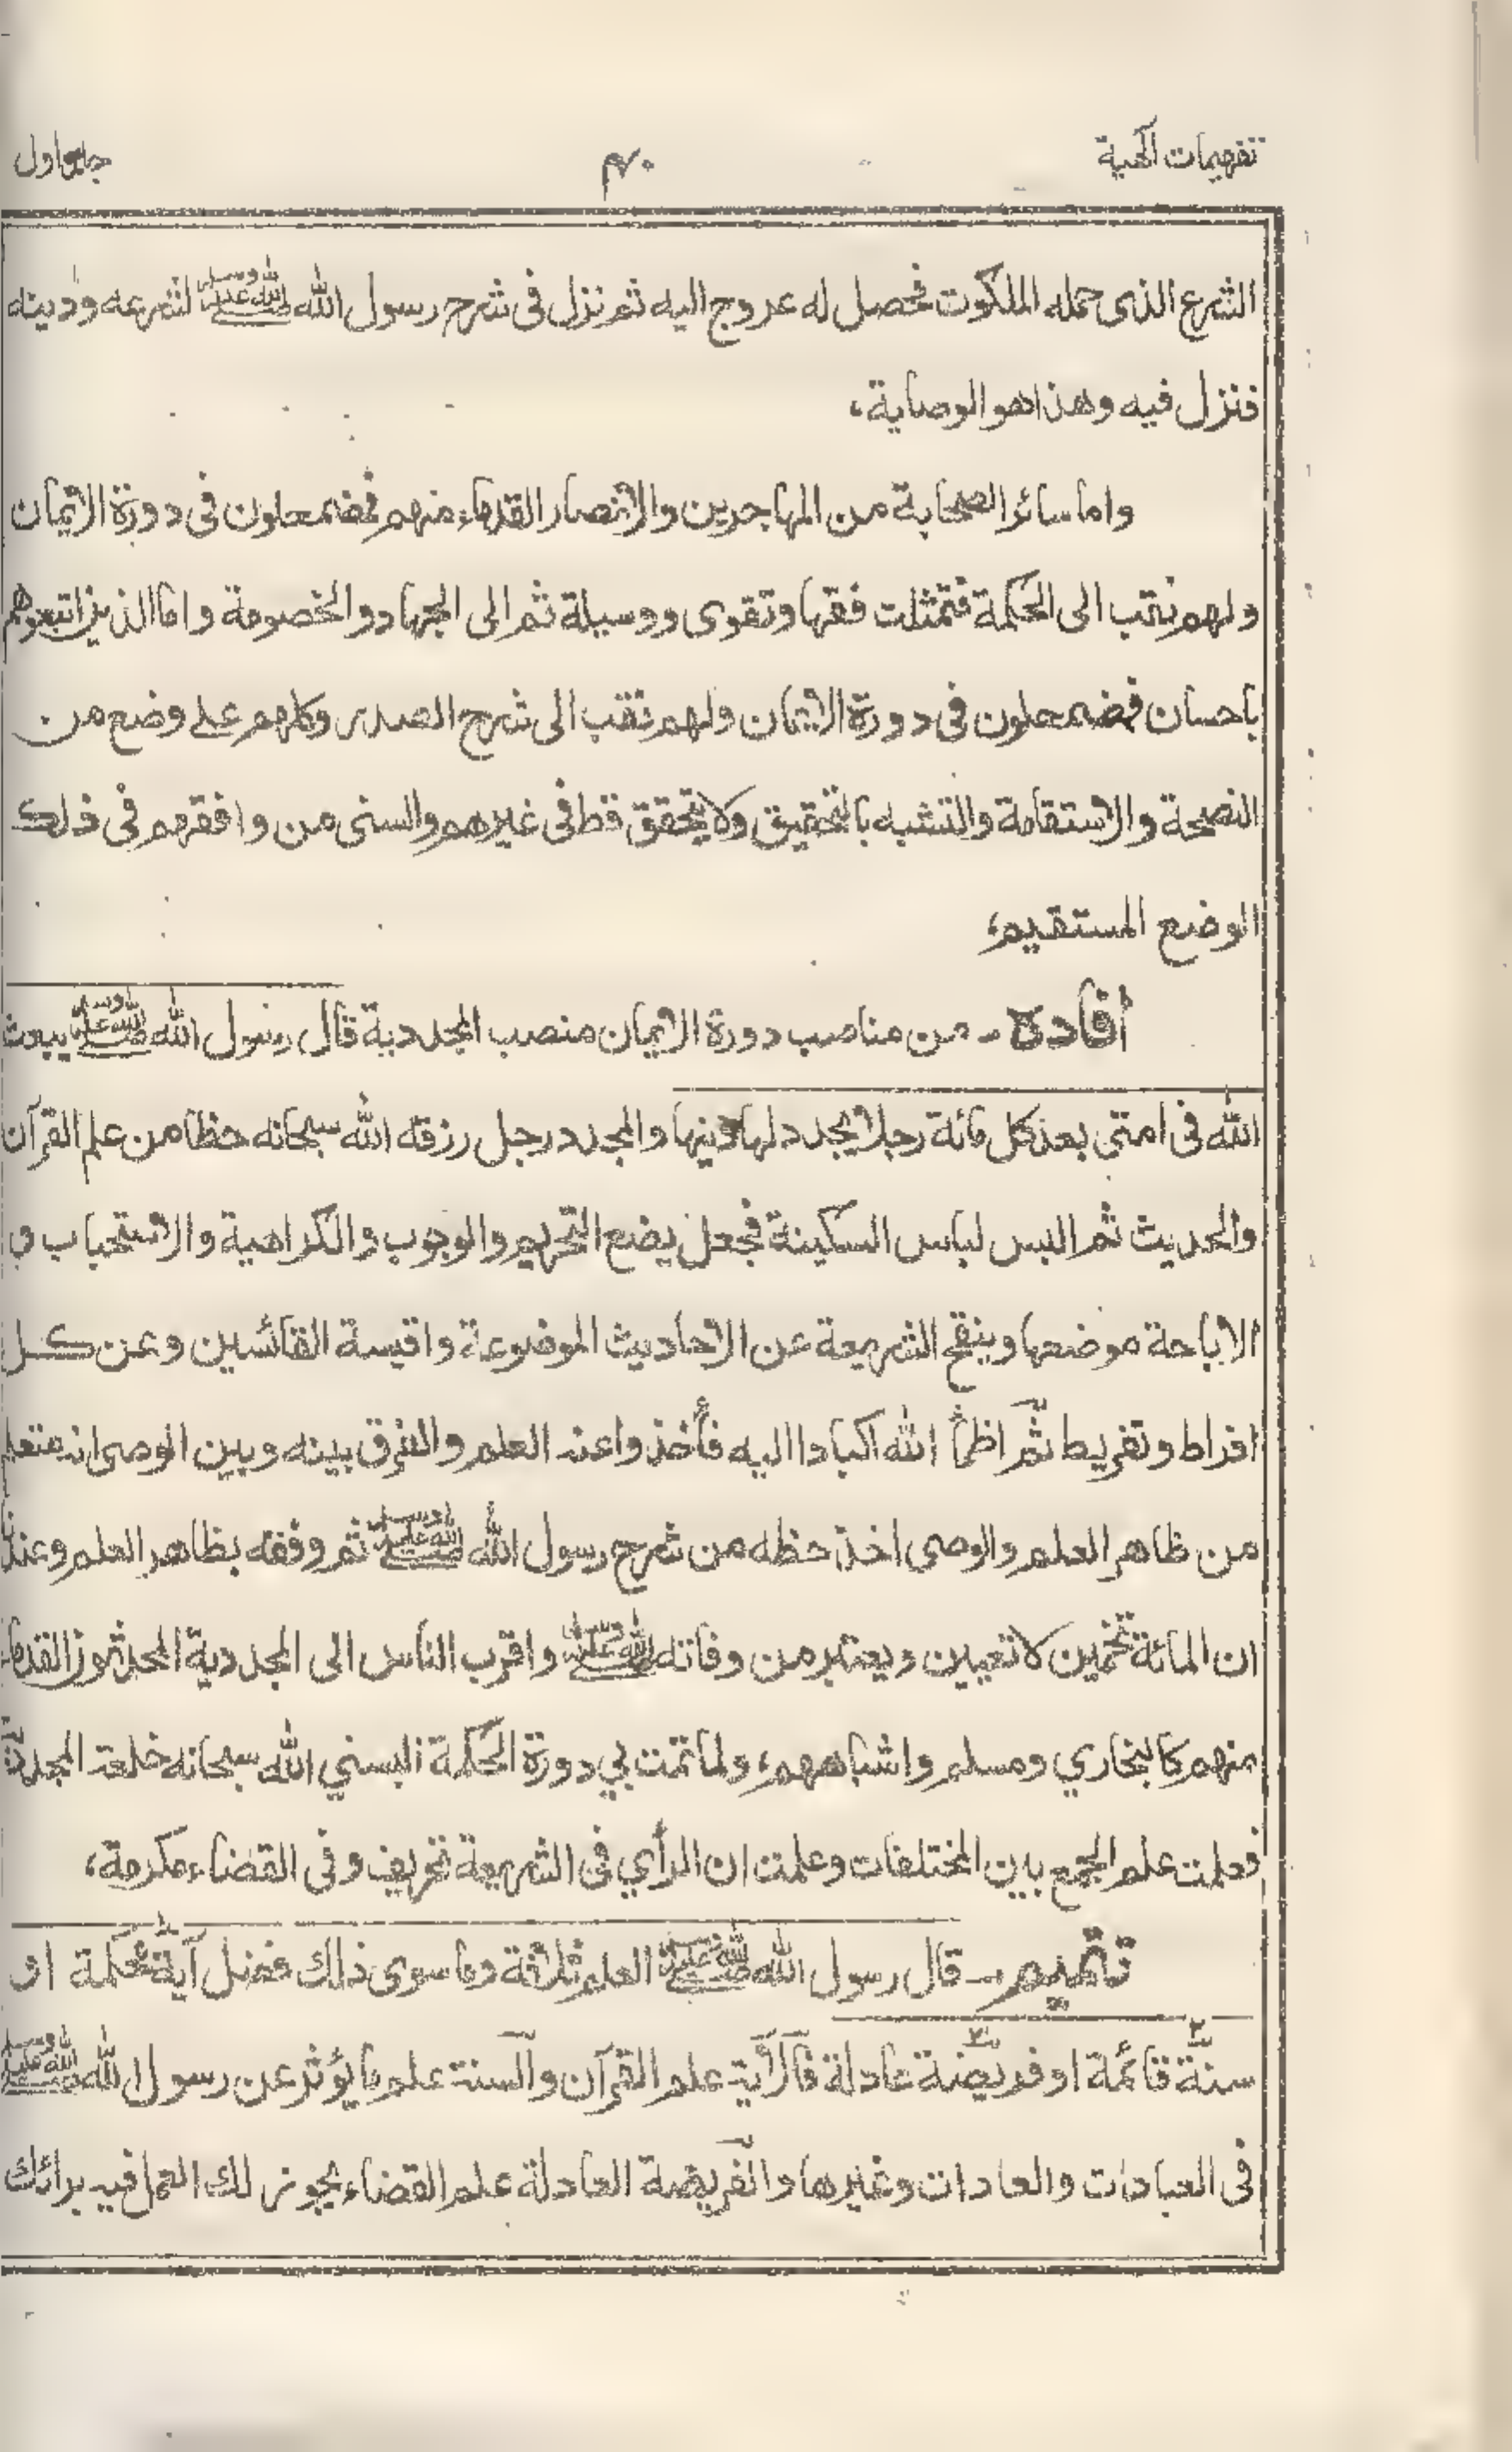 تفهيمات الٰهية ۴۰ جلد اول
الشرع الذى حمله الملكوت فحصل له عروج اليه ثم نزل فى شرح رسول الله صلى الله عليه وسلم لشرعه ودينه
فنزل فيه وهذا هو الوصاية،
واما سائر الصحابة من المهاجرين والانصار القدماء منهم فمضمحلون فى دورة الايمان
ولهم نقب الى الحكمة فتمثلت فقها وتقوى ووسيلة ثم الى الجهاد والخصومة واما الذين اتبعوهم
باحسان فمضمحلون فى دورة الايمان ولهم نقب الى شرح الصدر وكلهم على وضع من
النصيحة والاستقامة والتشبه بالتحقيق ولا يتحقق قط فى غيرهم والسنى من وافقهم فى ذلك
الوضع المستقيم،
أفادة - من مناصب دورة الايمان منصب المجددية قال رسول الله صلى الله عليه وسلم يبعث
الله فى امتى بعد كل مائة رجلا يجدد لها دينها والمجدد رجل رزقه الله سبحانه حظا من علم القرآن
والحديث ثم البس لباس السكينة فجعل يضع التحريم والوجوب والكراهية والاستحباب و
الاباحة موضعها وينقح الشريعة عن الاحاديث الموضوعة واقيسة القائسين وعن كل
افراط وتفريط ثم اظمأ الله اكبادا اليه فأخذوا عنه العلم والفرق بينه وبين الوصى انه متعلم
من ظاهر العلم والوصى اخذ حظه من شرح رسول الله صلى الله عليه وسلم ثم وفقه بظاهر العلم وعندنا
ان المائة تخمين لا تعيين ويعتبر من وفاته صلى الله عليه وسلم واقرب الناس الى المجددية المحدثون القدماء
منهم كالبخاري ومسلم واشباههم، ولما تمت بي دورة الحكمة البسني الله سبحانه خلعة المجددية
فعلمت علم الجمع بين المختلفات وعلمت ان الرأي فى الشريعة تحريف وفى القضاء مكرمة،
تتميم - قال رسول الله صلى الله عليه وسلم العلم ثلاثة وما سوى ذلك فضل آية محكمة او
سنة قائمة او فريضة عادلة فالآية علم القرآن والسنة علم ما يؤثر عن رسول الله صلى الله عليه وسلم
فى العبادات والعادات وغيرها والفريضة العادلة علم القضاء يجوز لك العمل فيه برائك